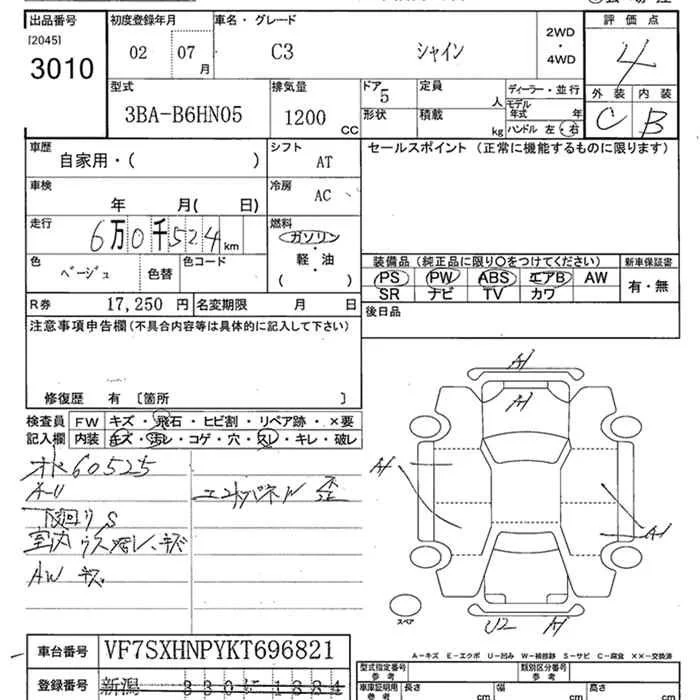 出品番号 初度登録年月 車名・グレード 評価点
[2045] 02 07 月 C3 シャイン 2WD・4WD 4
3010
型式 排気量 ドア 5 定員 人 ディーラー・並行 外装 内装
3BA-B6HN05 1200 CC 形状 積載 kg モデル年式 年 C B
ハンドル 左・右
車歴 シフト セールスポイント（正常に機能するものに限ります）
自家用・( ) AT
車検 冷房
年 月( 日) AC
走行 燃料
6万0千524km ガソリン
軽・油
( )
色 色替 色コード 装備品（純正品に限り○をつけてください） 新車保証書
ベージュ PS PW ABS エアB AW 有・無
SR ナビ TV カワ
R券 17,250円 名変期限 月 日 後日品
注意事項申告欄（不具合内容等は具体的に記入して下さい）
修復歴 有 〔箇所 〕
検査員 FW キズ・飛石・ヒビ割・リペア跡・×要
記入欄 内装 キズ・汚レ・コゲ・穴・スレ・キレ・破レ
60525
A-U
下廻りS
室内 ウス汚レ、キズ
AW キズ
A1
A1
A1
A1
U2 A1
スペア
A-キズ E-エクボ U-凹み W-補修跡 S-サビ C-腐食 ××-交換済
車台番号 VF7SXHNPYKT696821
型式指定番号 類別区分番号
参考 参考
登録番号 新潟
車庫証明用 参考 長さ cm 幅 cm 高さ cm